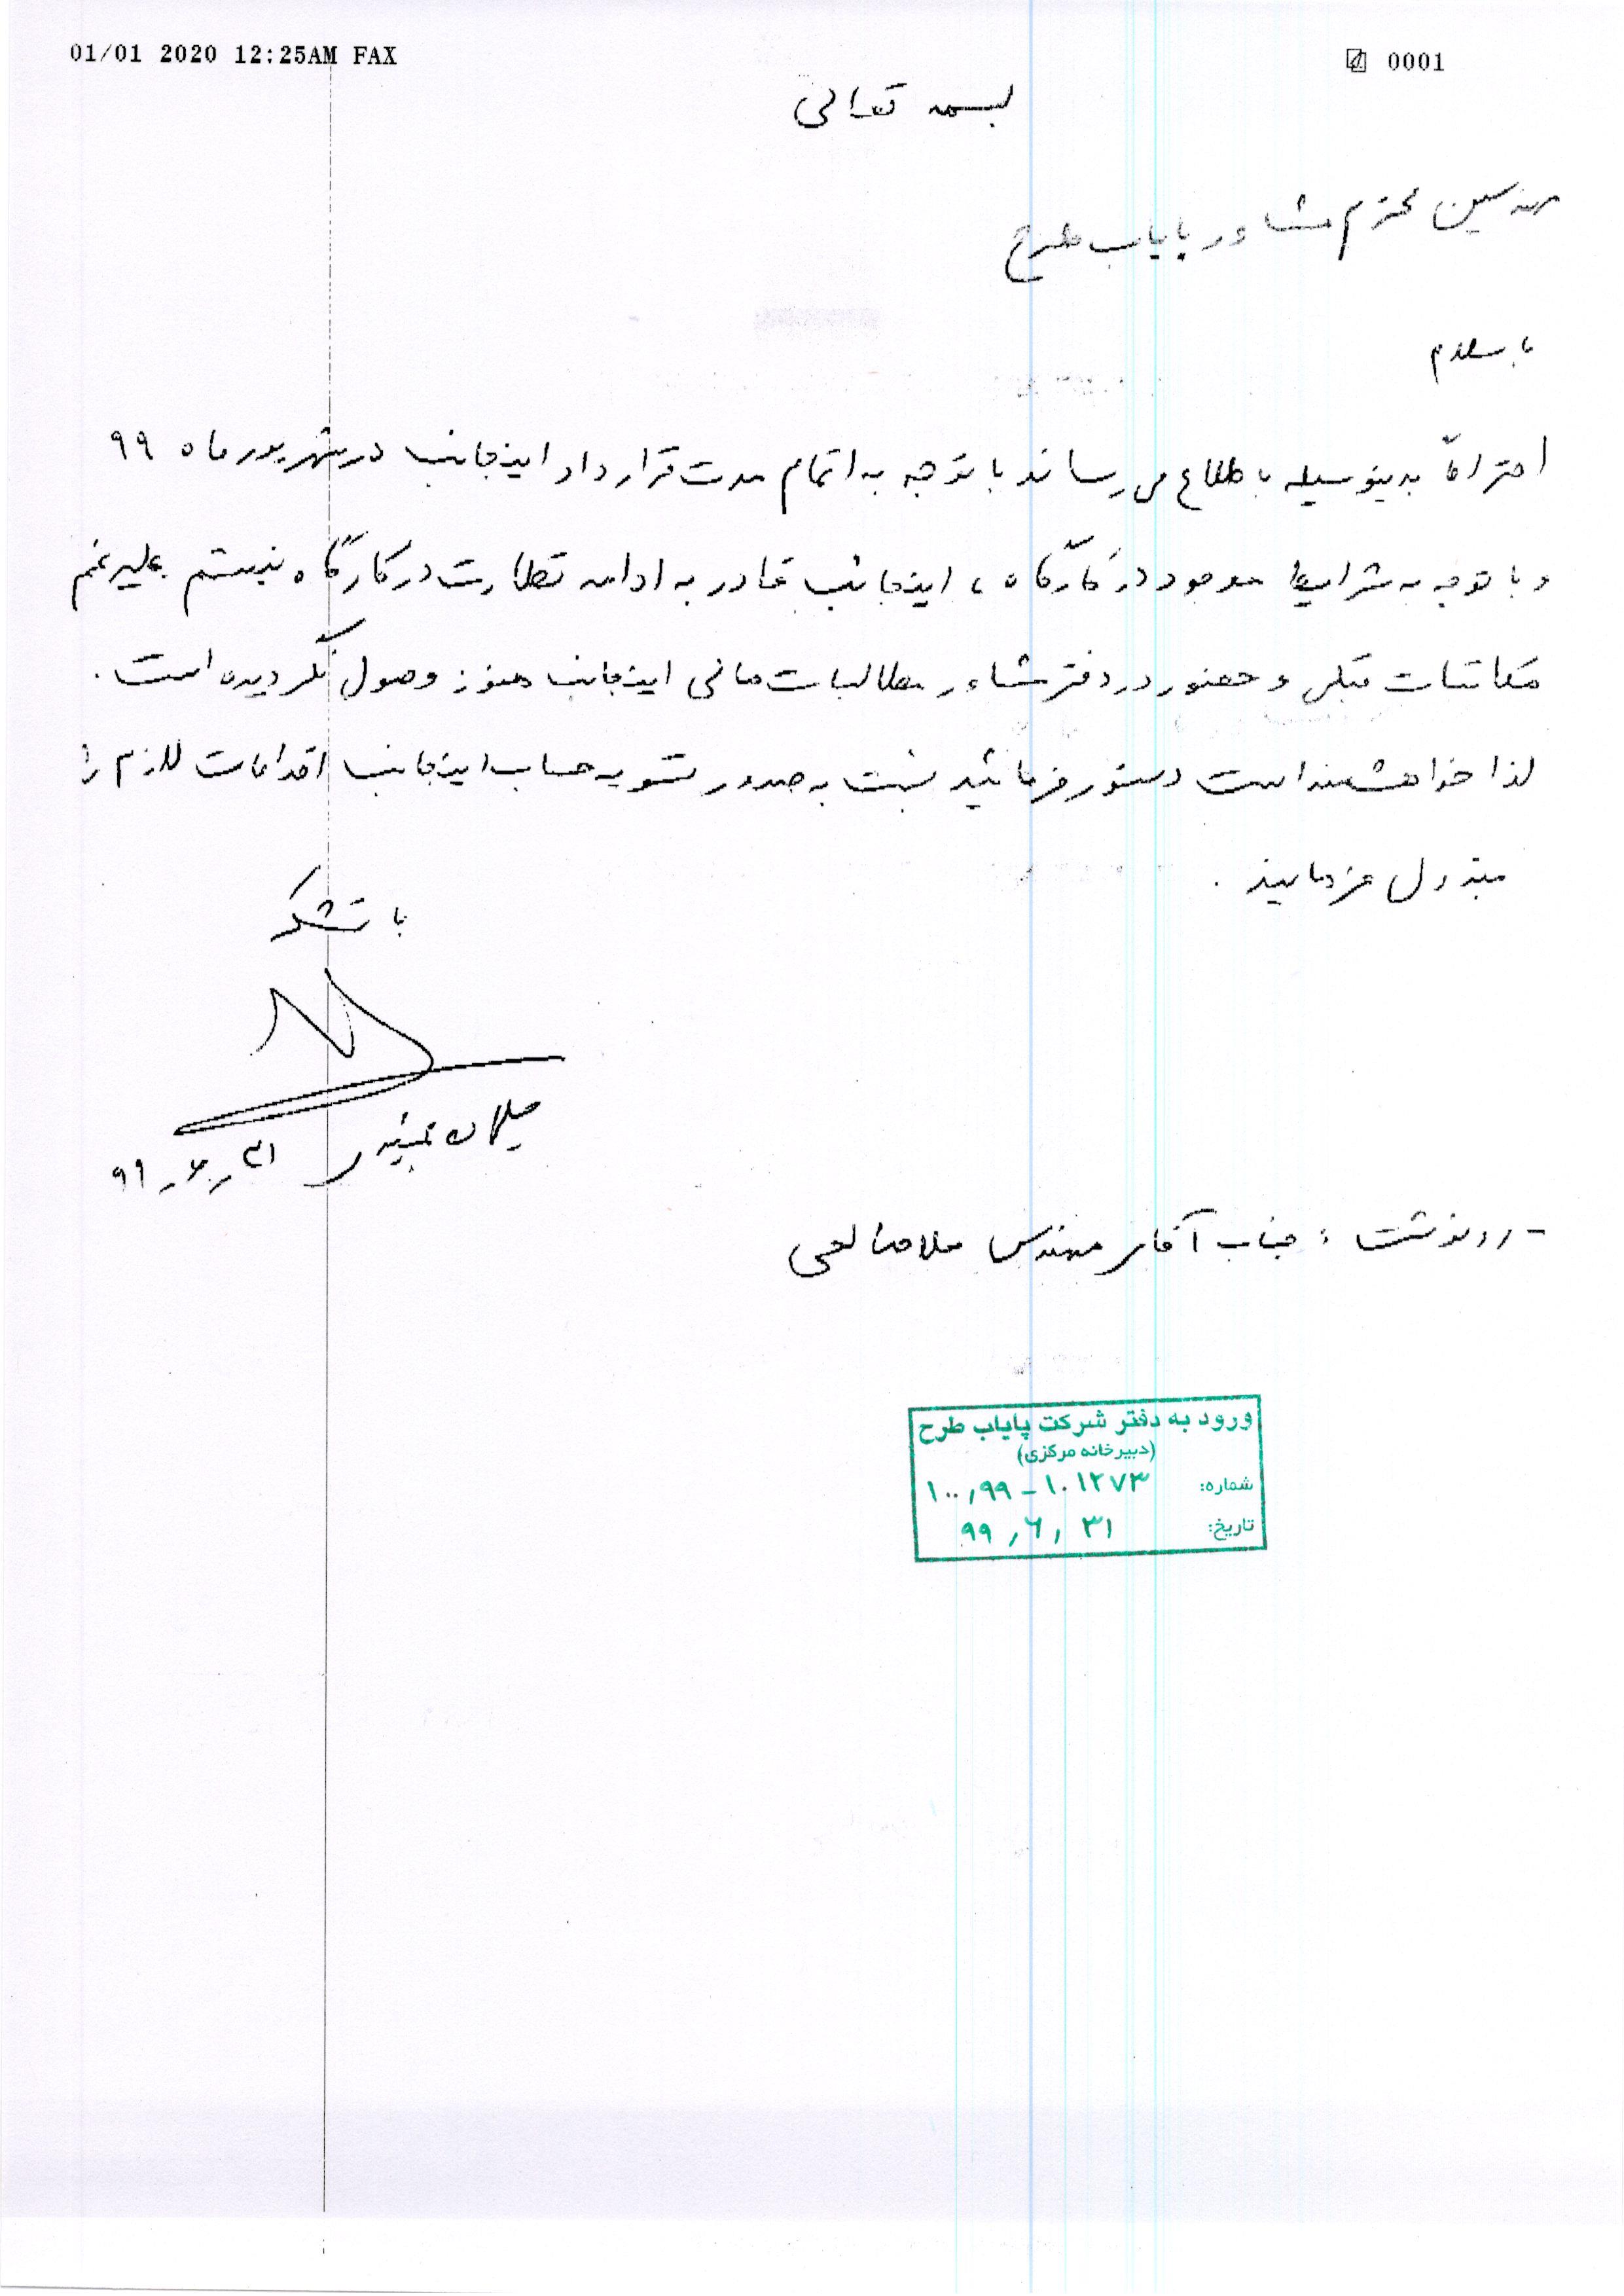 01/01 2020 12:25AM FAX 0001
بسمه تعالی
مهندسین محترم مشاور پایاب طرح
با سلام
احتراماً بدینوسیله باطلاع می رساند با توجه به اتمام مدت قرارداد اینجانب در شهریور ماه ۹۹
و با توجه به شرایط موجود در کارگاه ، اینجانب قادر به ادامه نظارت در کارگاه نیستم علیرغم
مکاتبات قبلی و حضور در دفتر مشاور مطالبات مالی اینجانب هنوز وصول نگردیده است .
لذا خواهشمند است دستور فرمائید نسبت به صدور تسویه حساب اینجانب اقدامات لازم را
مبذول فرمایید .
با تشکر
۳۱ ر ۶ ر ۹۹
- رونوشت : جناب آقای مهندس ملاصالحی
ورود به دفتر شرکت پایاب طرح
(دبیرخانه مرکزی)
شماره: ۱۰۰,۹۹ – ۱۰۱۲۷۳
تاریخ: ۳۱ , ۶ , ۹۹